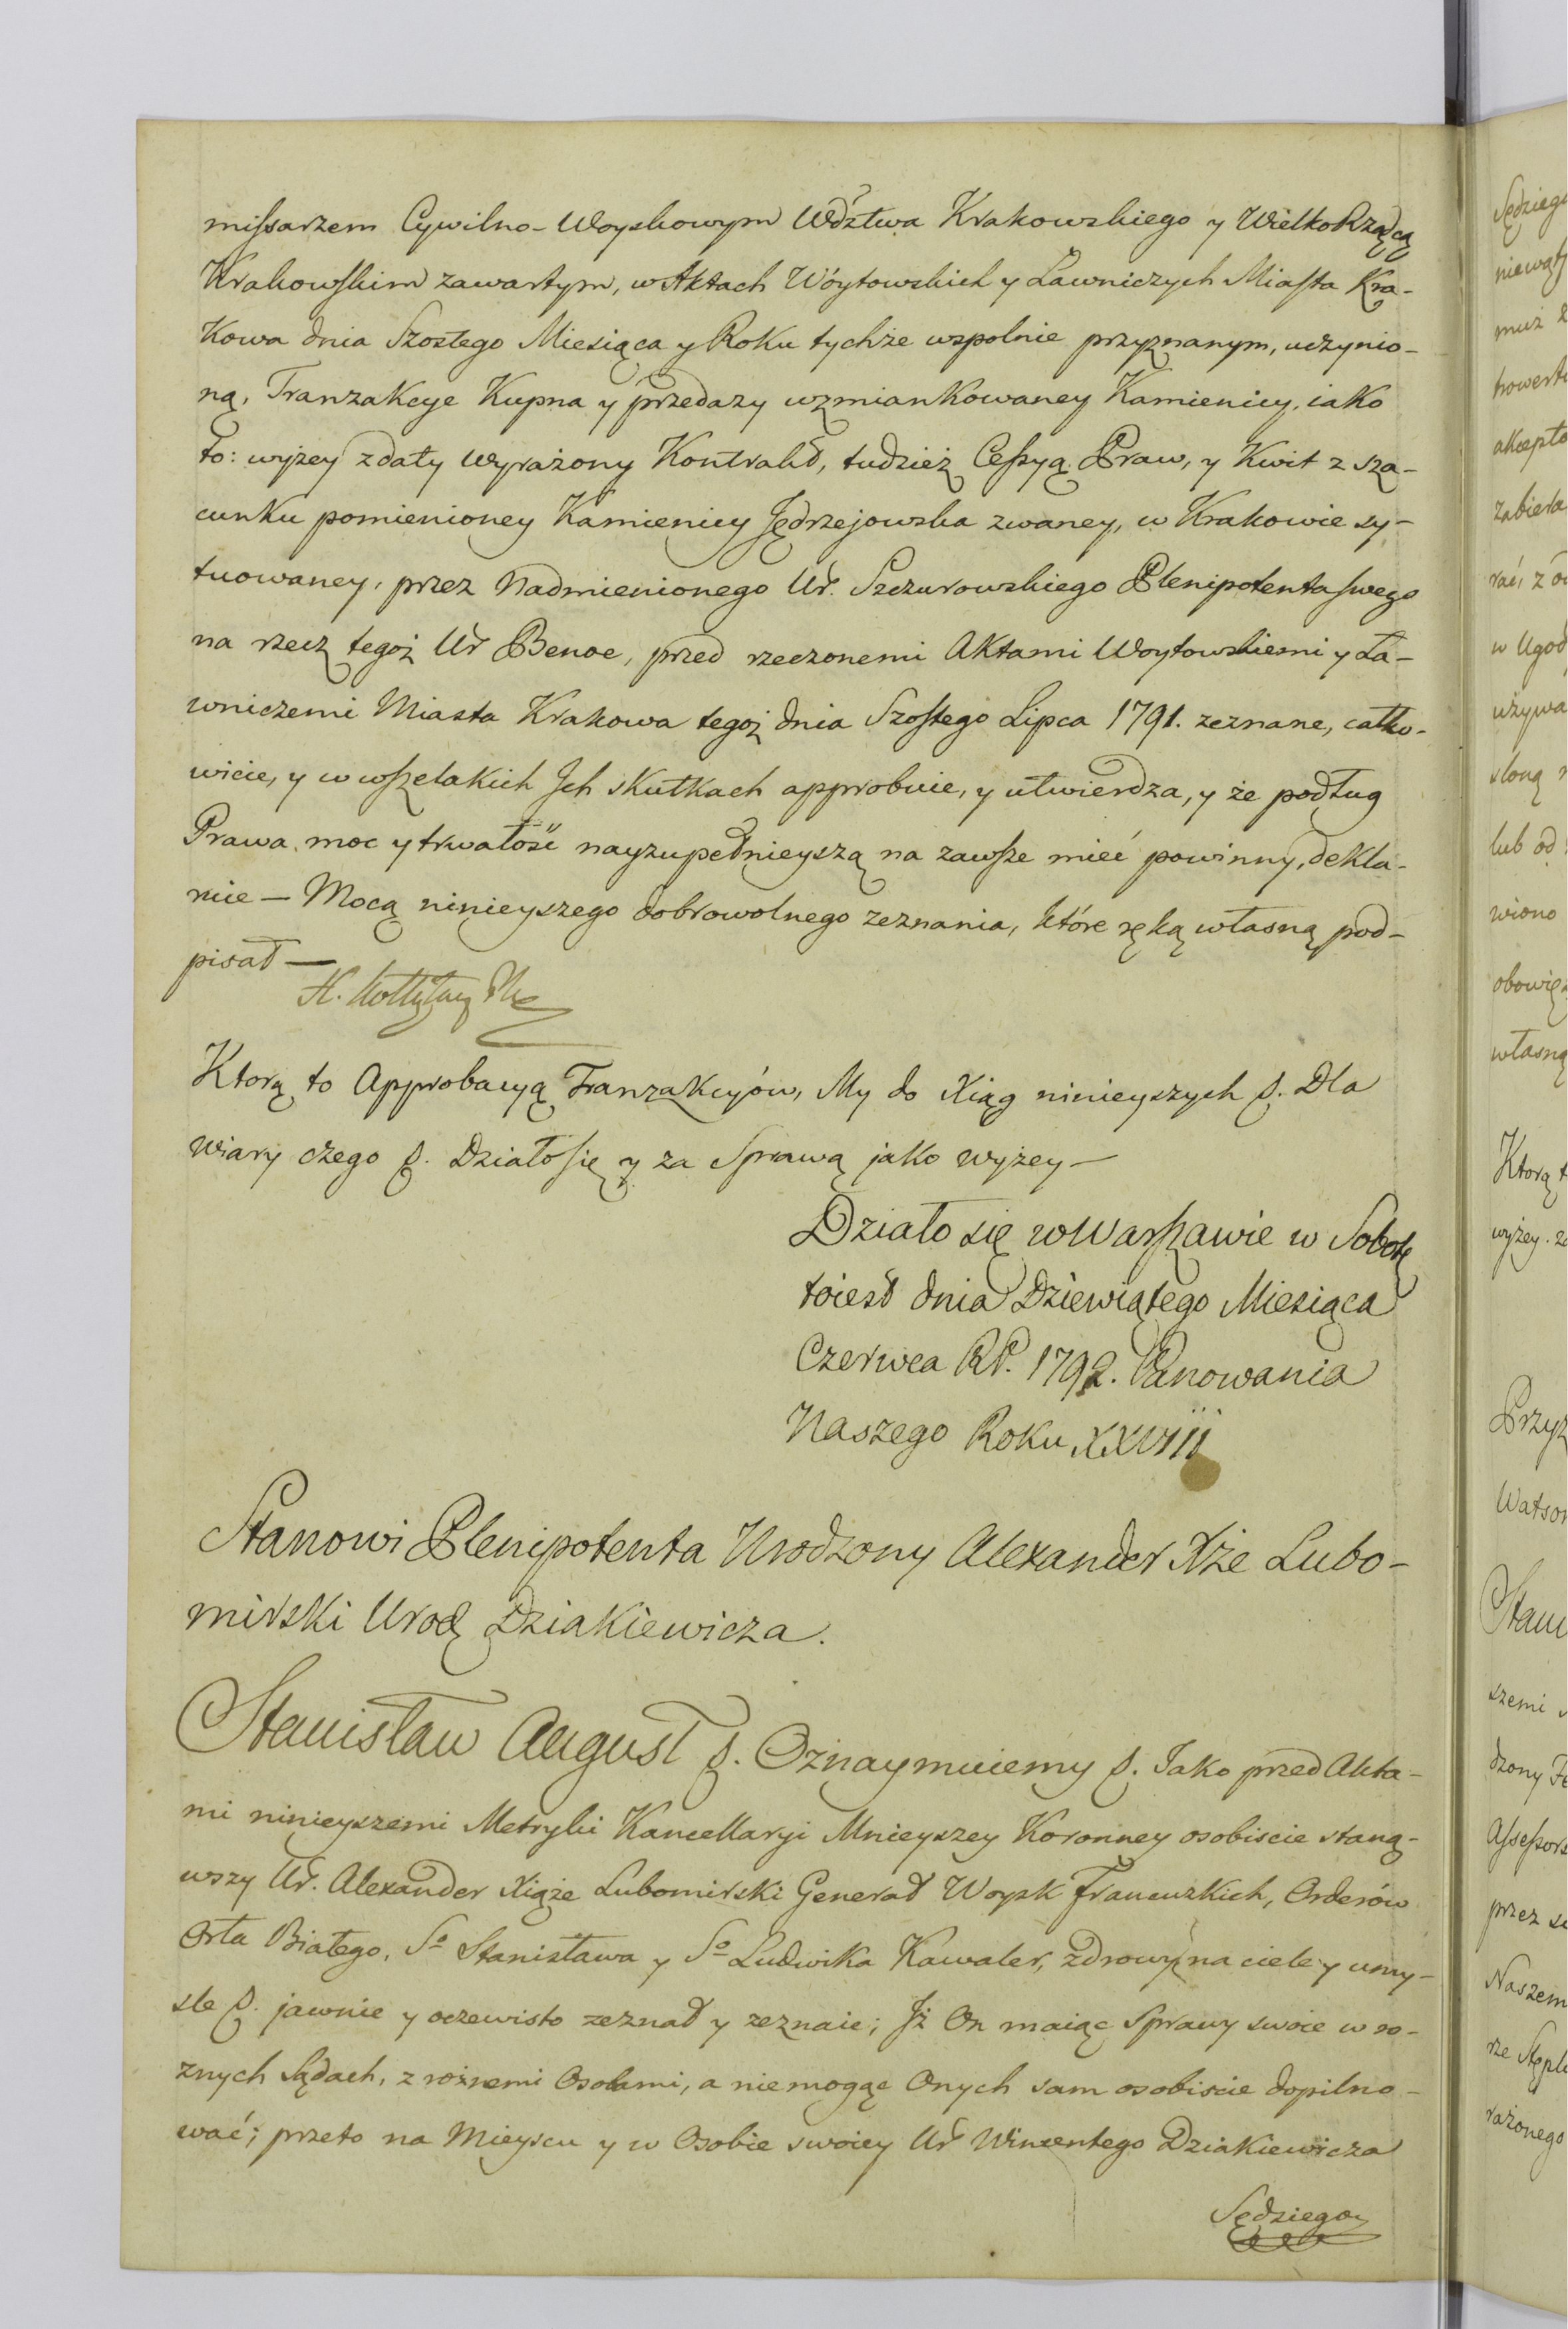 missarzem Cywilno-Woyskowym Wdztwa Krakowskiego y WielkoRządcą
Krakowskim zawartym, w Aktach Wóytowskich y Ławniczych Miasta Kra-
kowa dnia Szostego Miesiąca y Roku tychże wspolnie przyznanym, uczynio-
ną, Tranzakcye Kupna y przedazy wzmiankowaney Kamienicy, iako
to: wyżey z daty wyrażony Kontrakt, tudzież Cessyą Praw, y Kwit z sza-
cunku pomienioney Kamienicy Jędrzejowska zwaney, w Krakowie sy-
tuowaney, przez Nadmienionego Ur. Szczurowskiego Plenipotenta swego
na rzecz tegoż Ur Benoe, przed rzeczonemi Aktami Woytowskiemi y Ła-
wniczemi Miasta Krakowa tegoż dnia Szostego Lipca 1791. zeznane, całko-
wicie, y w wszelakich Jch skutkach approbuie, y utwierdza, y że podług
Prawa moc y trwałość nayzupełnieyszą na zawsze mieć powinny, dekla-
ruie — Mocą ninieyszego dobrowolnego zeznania, które ręką własną pod-
pisał —
H. Kołłątay
Ktorą to Approbacyą Tranzakcyów, My do Xiąg ninieyszych p. Dla
wiary czego p. Działo się y za Sprawą jako wyżey —
Działo się w Warszawie w Sobotę
toiest dnia Dziewiątego Miesiąca
Czerwca RP. 1792. Panowania
Naszego Roku XXVIII
Stanowi Plenipotenta Urodzony Alexander Xże Lubo-
mirski Urodz Dziakiewicza.
Stanisław August p. Oznaymuiemy p. Jako przed Akta-
mi ninieyszemi Metryki Kancellaryi Mnieyszey Koronney osobiscie staną-
wszy Ur. Alexander Xiąże Lubomirski Generał Woysk Francuzkich, Orderów
Orła Białego, So Stanisława y So Ludwika Kawaler, zdrowy na ciele y umy-
sle p. jawnie y oczewisto zeznał y zeznaie; Jż On maiąc Sprawy swoie w ro-
znych Sądach, z rożnemi Osobami, a niemogąc Onych sam osobiscie dopilno-
wać; przeto na Mieyscu y w Osobie swoiey Ur Wincentego Dziakiewicza
Sędziego